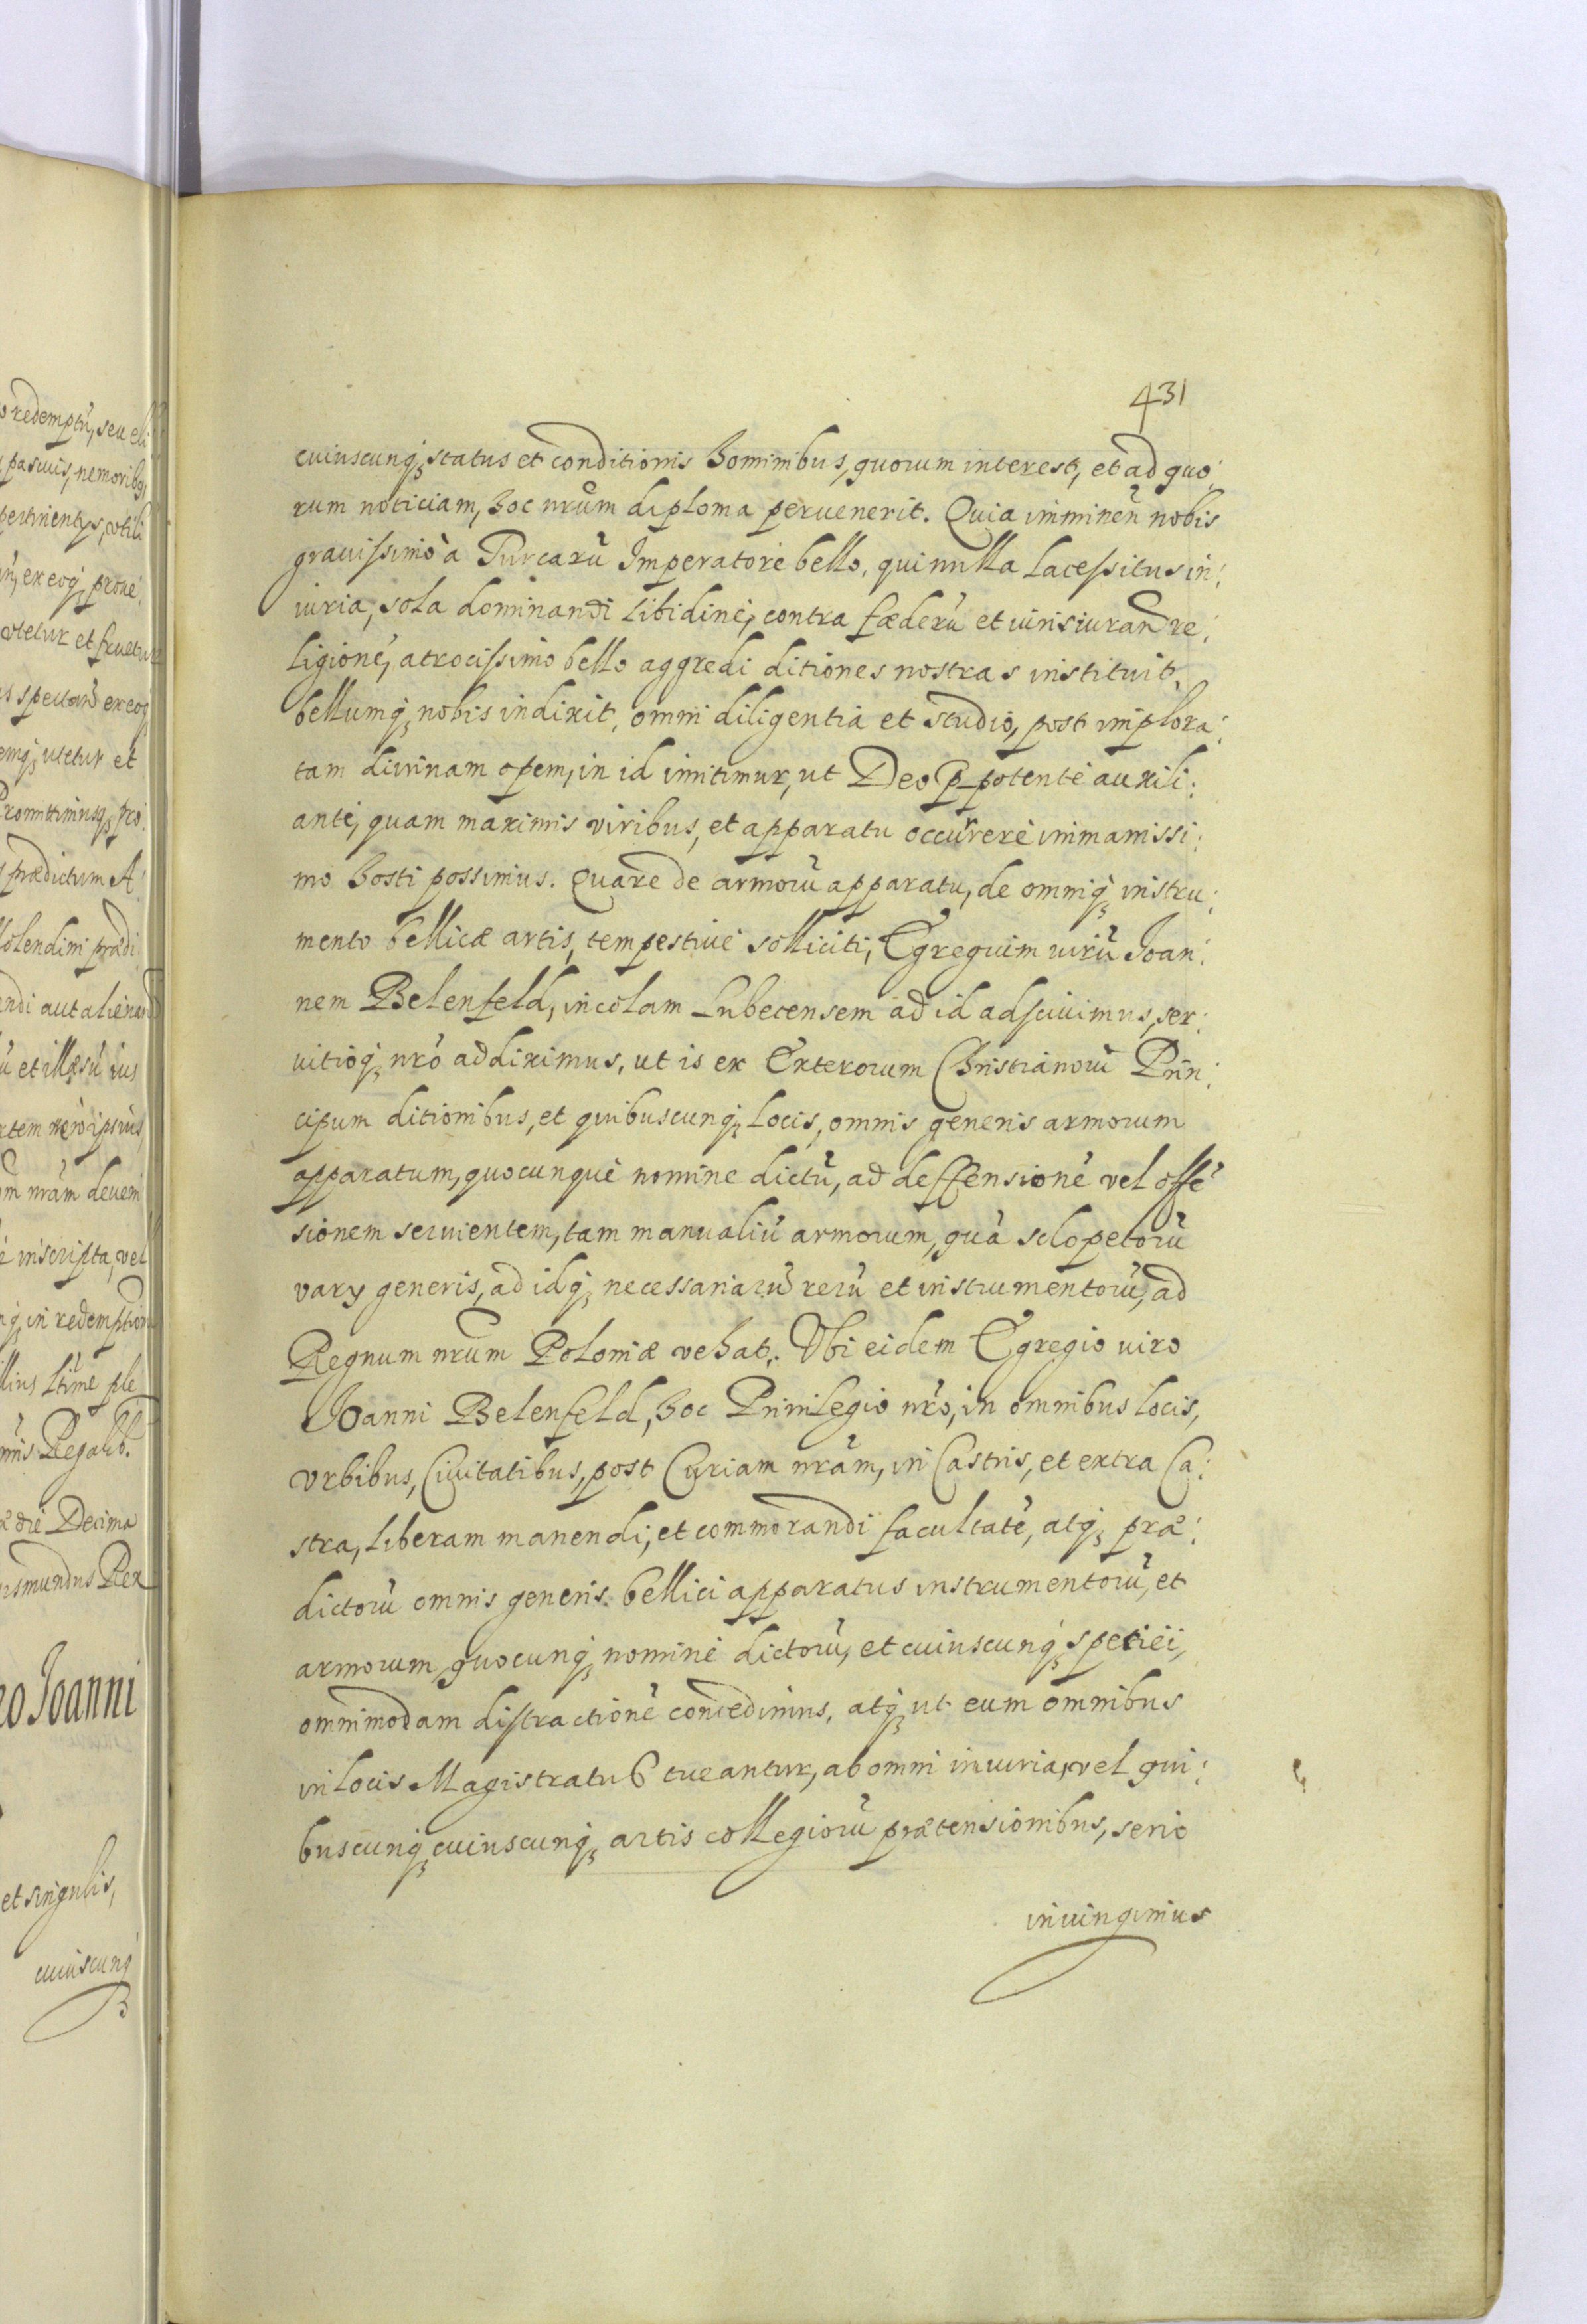 431
cuiuscunq; status et conditionis hominibus, quorum interest, et ad quo:
rum noticiam, hoc nrũm diploma peruenerit. Quia imminen̄ nobis
grauissimo à Turcarũ Imperatore bello, qui nulla lacessitus in:
iuria, sola dominandi libidine, contra fœderũ et iurisiurand re:
ligionẽ, atrocissimo bello aggredi ditiones nostras instituit,
bellumq; nobis indixit, omni diligentia et studio, post implora:
tam diuinam opem, in id innitimur, ut Deo p̲potente auxili:
ante, quam maximis viribus, et apparatu occurrere immanissi:
mo hosti possimus. Quare de armorũ apparatu, de omniq; instru:
mento bellicæ artis, tempestiue solliciti, Egregium uirũ Joan:
nem Belenfeld, incolam Lubecensem ad id adsciuimus, ser:
uitioq; nrõ addiximus, ut is ex Exterorum Christianorũ Prin:
cipum ditionibus, et quibuscunq; locis, omnis generis armorum
apparatum, quocunque nomine dictũ, ad deffensionẽ vel offẽ
sionem seruientem, tam manualiũ armorum, quã sclopetorũ
varij generis, ad idq; necessariarũ rerũ et instrumentorũ, ad
Regnum nrũm Poloniæ vehat. Ubi eidem Egregio uiro
Joanni Belenfeld, hoc Priuilegio nrõ, in omnibus locis,
vrbibus, Ciuitatibus, post Curiam nrãm, in Castris, et extra Ca:
stra, liberam manendi, et commorandi facultatẽ, atq; præ:
dictorũ omnis generis bellici apparatus instrumentorũ, et
armorum, quocunq; nomine dictorũ, et cuiuscunq; speciei,
omnimodam distractionẽ concedimus, atq; ut eum omnibus
in locis Magistratus tueantur, ab omni iniuria, vel qui:
buscunq; cuiuscunq; artis collegiorũ prætensionibus, serio
iniungimus